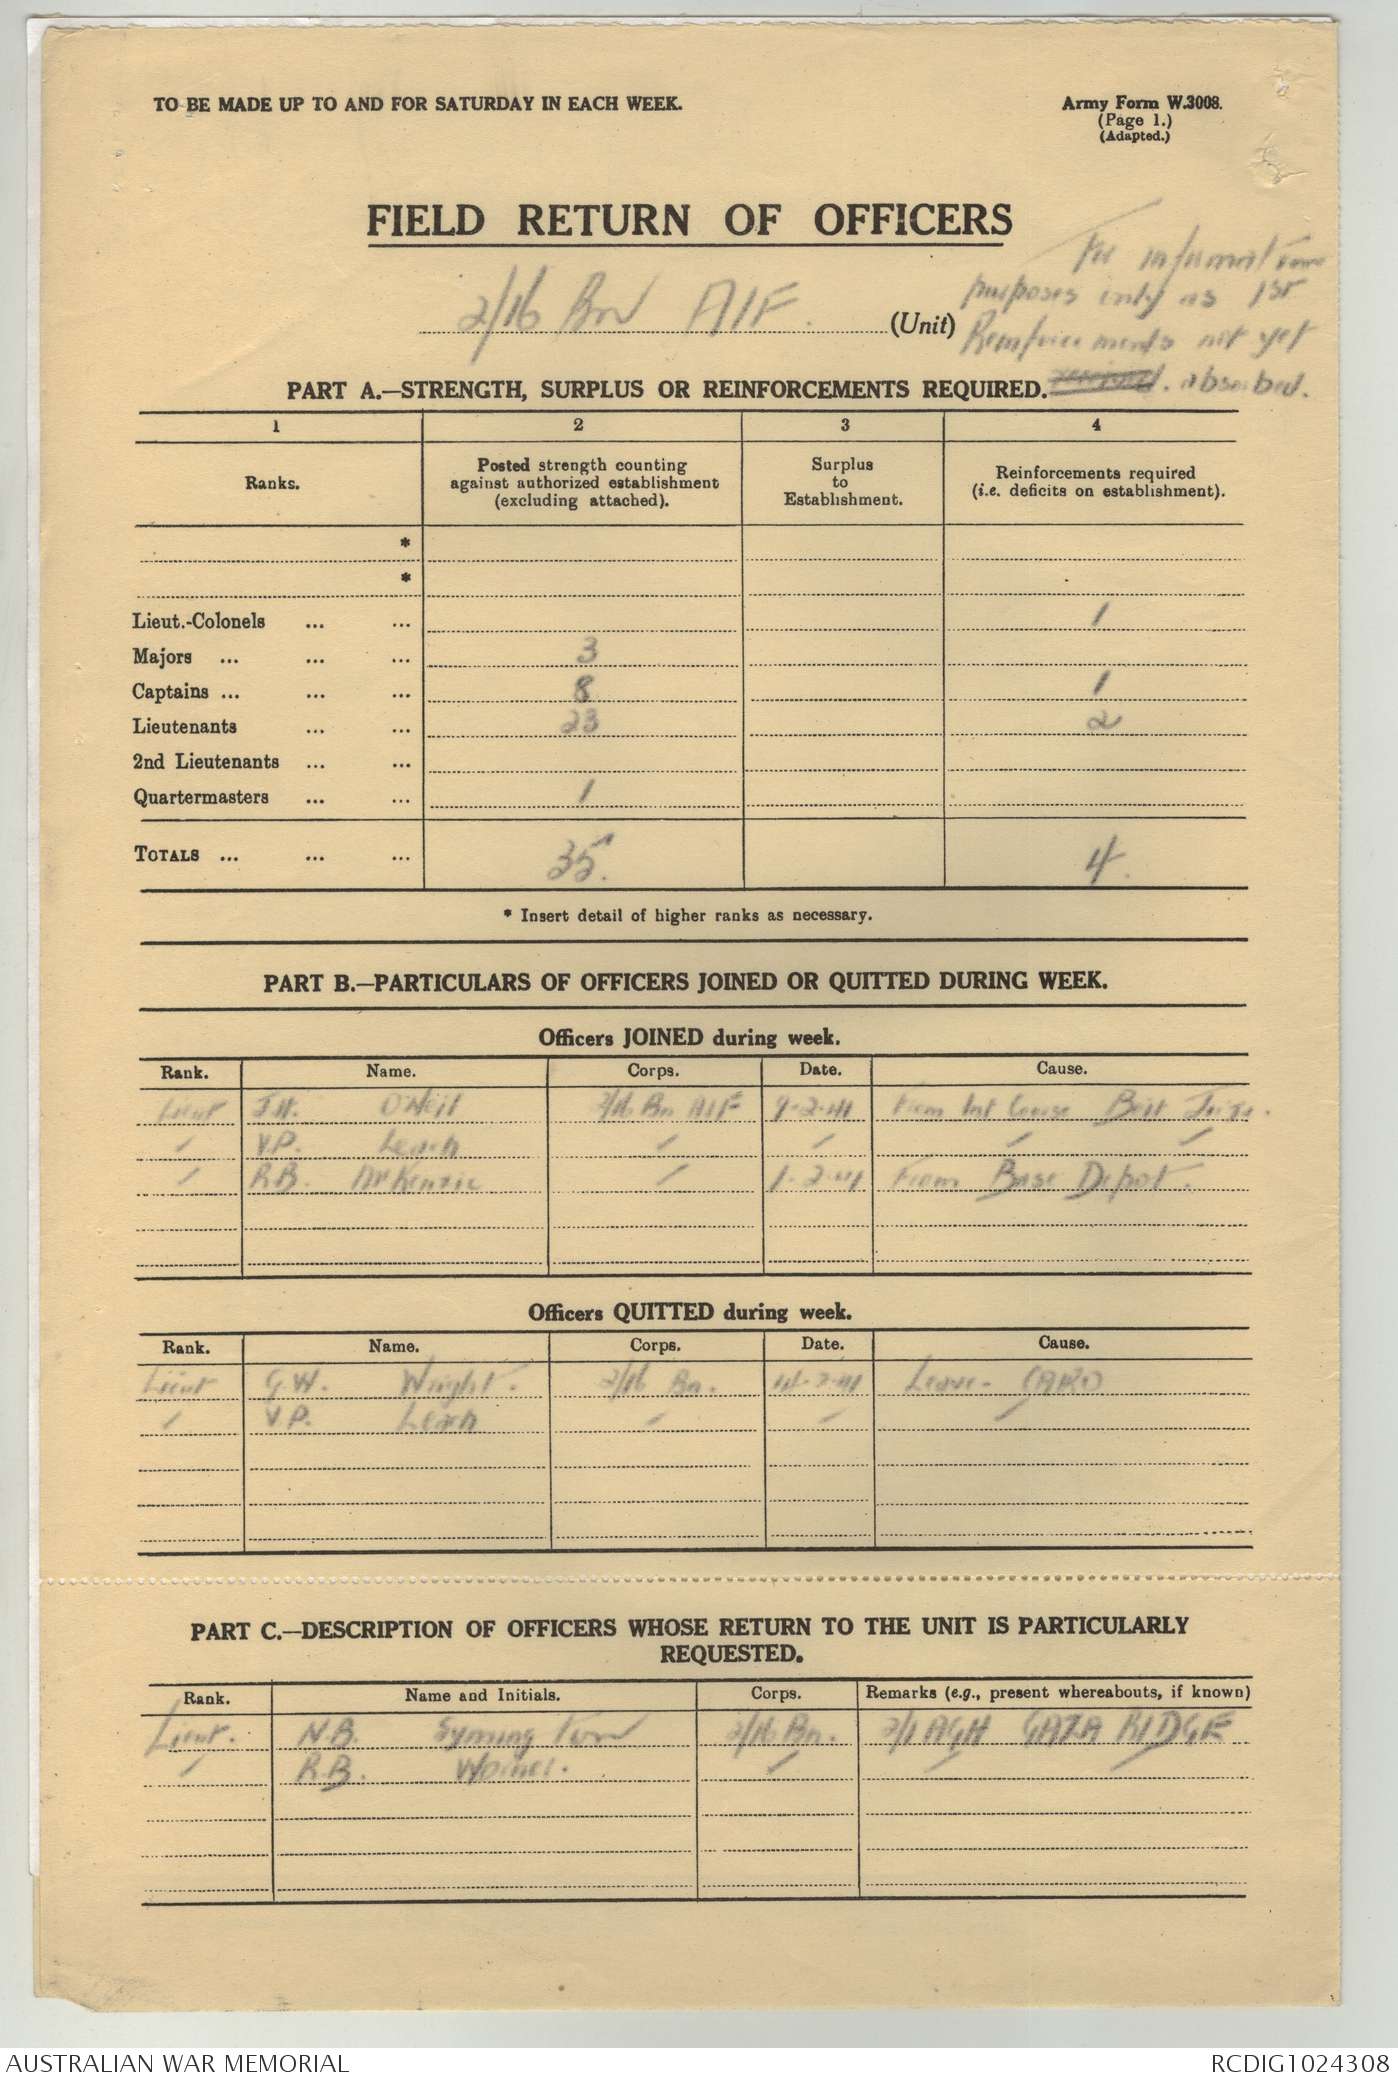 TO BE MADE UP TO AND FOR SATURDAY IN EACH WEEK.
Army Form W.3008.
(Page 1.)
(Adapted.)
FIELD RETURN OF OFFICERS
2/16 Bn AIF. (Unit)
For information
purposes only as 1st
Reinforcements not yet
absorbed.
PART A.—STRENGTH, SURPLUS OR REINFORCEMENTS REQUIRED.
1 2 3 4
Ranks. Posted strength counting against authorized establishment (excluding attached). Surplus to Establishment. Reinforcements required (i.e. deficits on establishment).
*
*
Lieut.-Colonels ... ... 1
Majors ... ... ... 3
Captains ... ... ... 8 1
Lieutenants ... ... 23 2
2nd Lieutenants ... ...
Quartermasters ... ... 1
TOTALS ... ... ... 35. 4.
* Insert detail of higher ranks as necessary.
PART B.—PARTICULARS OF OFFICERS JOINED OR QUITTED DURING WEEK.
Officers JOINED during week.
Rank. Name. Corps. Date. Cause.
Lieut J.H. O'Neil 2/16 Bn AIF 9-2-41 From Int Course Beit
" V.P. Leach " " " "
" R.B. McKenzie " 1-2-41 From Base Depot.
Officers QUITTED during week.
Rank. Name. Corps. Date. Cause.
Lieut G.W. Wright. 2/16 Bn. 14-2-41 Leave- CAIRO
" V.P. Leach " " "
PART C.—DESCRIPTION OF OFFICERS WHOSE RETURN TO THE UNIT IS PARTICULARLY
REQUESTED.
Rank. Name and Initials. Corps. Remarks (e.g., present whereabouts, if known)
Lieut. N.B. Symington 2/16 Bn. 2/1 AGH GAZA RIDGE
" R.B. " " "
AUSTRALIAN WAR MEMORIAL
RCDIG1024308